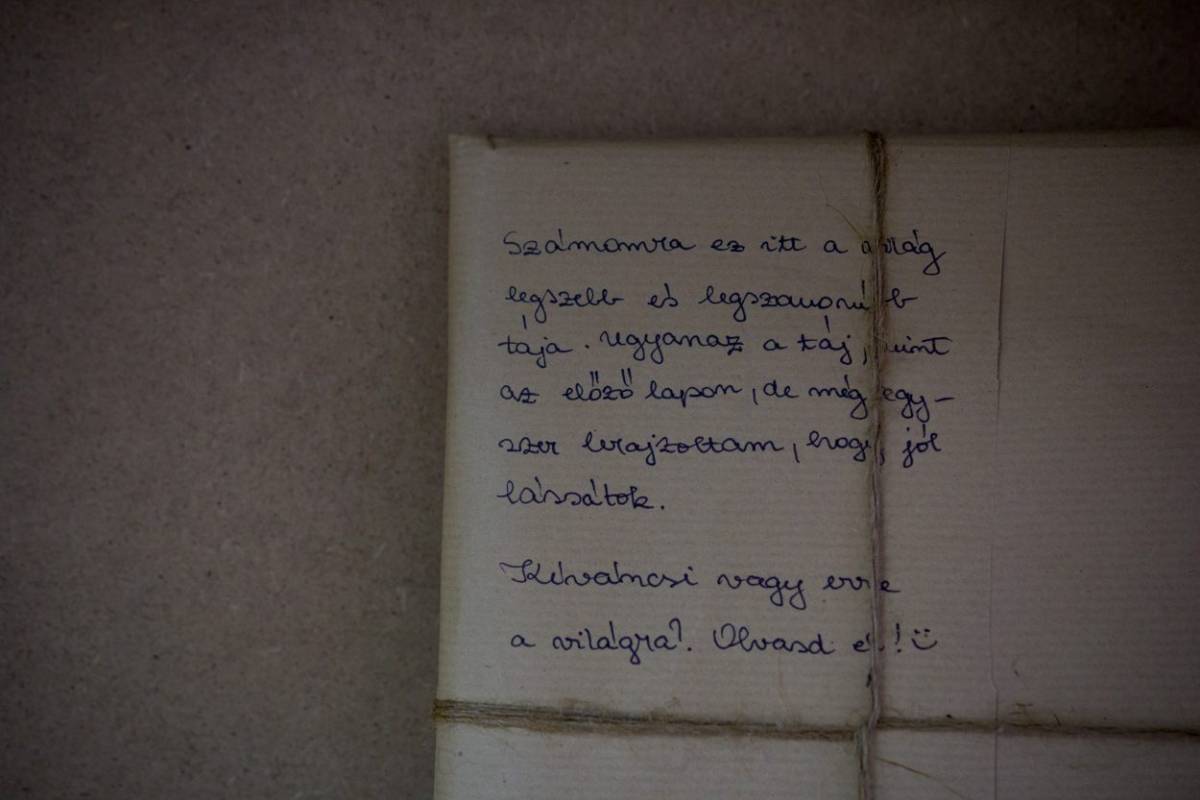 Számomra ez itt a világ
legszebb és legszomorúbb
tája. Ugyanaz a táj, mint
az előző lapon, de még egy-
szer lerajzoltam, hogy jól
lássátok.
Kíváncsi vagy erre
a világra? Olvasd el! :)